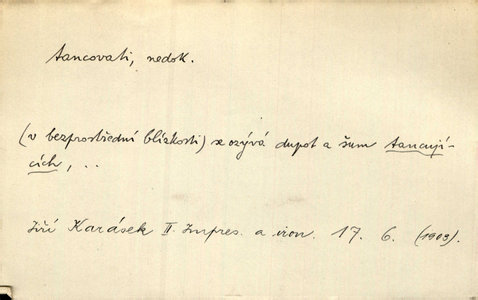 tancovati, nedok.
(v bezprostřední blízkosti) se ozývá dupot a šum tancují-
cích, ..
Jiří Karásek II. Impres. a iron. 17. 6. (1903).